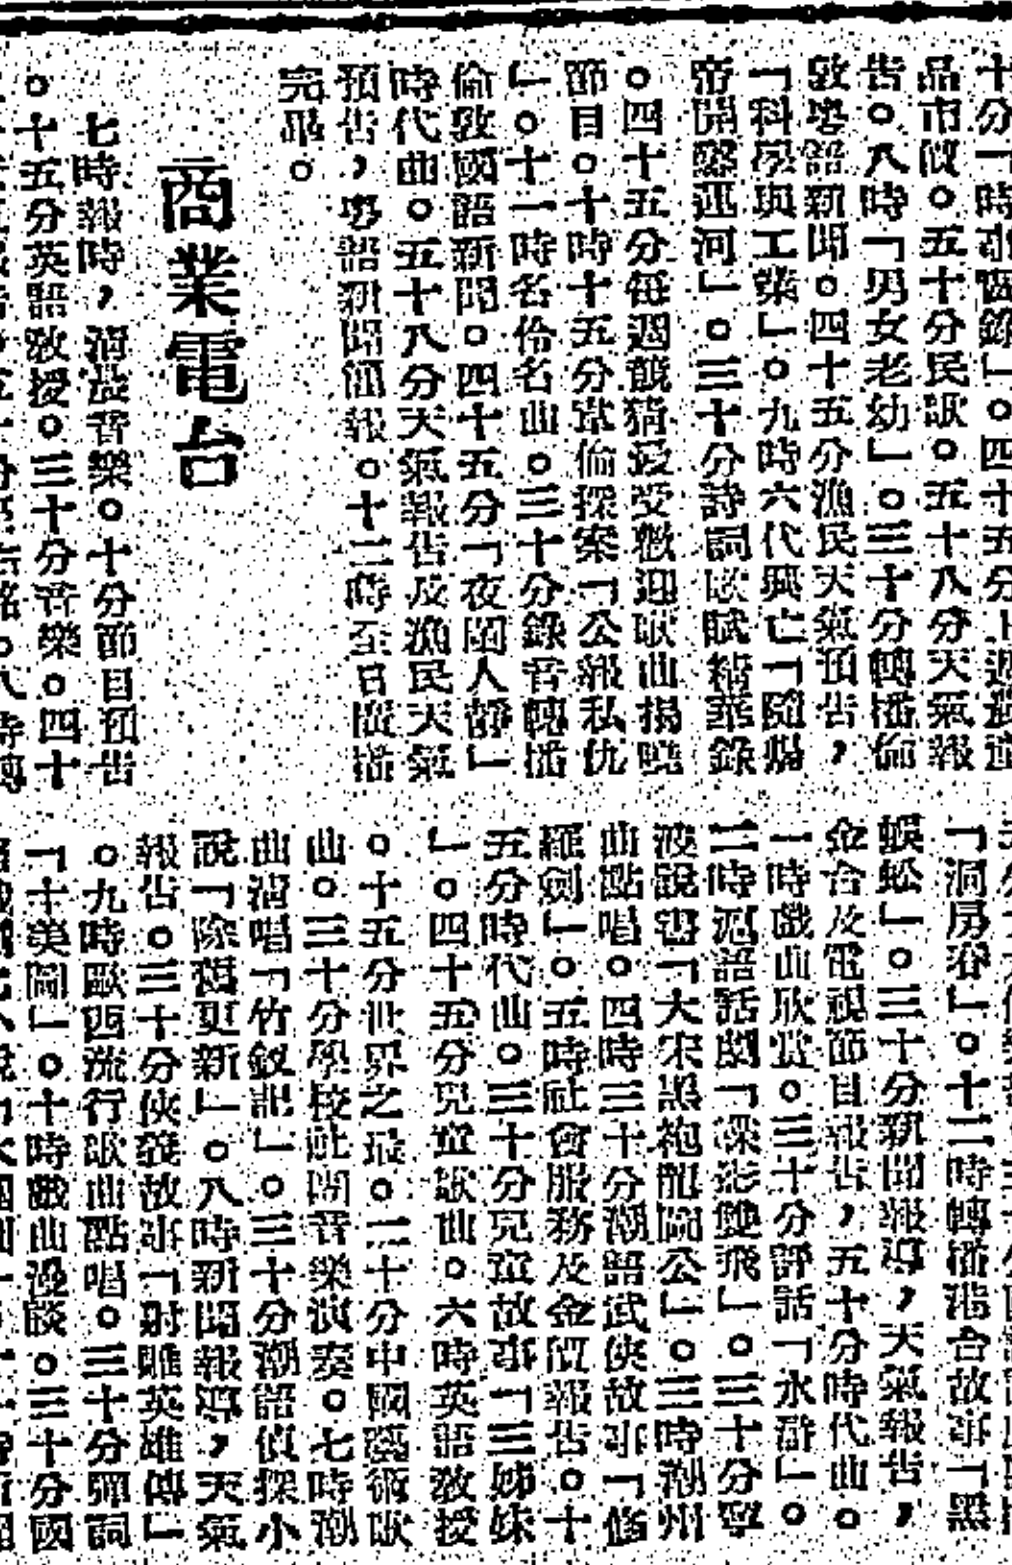 十分「時事
品市價。五十分民歌。五十八分天氣報
告。八時「男女老幼」。三十分轉播倫
敦粵語新聞。四十五分漁民天氣預告，
「科學與工業」。九時六代興亡「隨煬
帝開鑿運河」。三十分詩詞歌賦精華錄
。四十五分每週競猜最受歡迎歌曲揭曉
節目。十時十五分韋倫探案「公報私仇
」。十一時名伶名曲。三十分錄音轉播
倫敦國語新聞。四十五分「夜闌人靜」
時代曲。五十八分天氣報告及漁民天氣
預告，粵語新聞簡報。十二時至日廣播
完畢。
商業電台
七時報時，清晨音樂。十分節目預告
。十五分英語教授。三十分音樂。四十
「洞房春」。十二時轉播港台故事「黑
蜈蚣」。三十分新聞報導，天氣報告，
金合及電視節目報告，五十分時代曲。
一時戲曲欣賞。三十分評話「水滸」。
二時滬語話劇「媒影雙飛」。三十分寧
波說書「大宋黑袍龍圖公」。三時潮州
曲點唱。四時三十分潮語武俠故事「修
羅劍」。五時社會服務及金價報告。十
五分時代曲。三十分兒童故事「三姊妹
」。四十五分兒童歌曲。六時英語教授
。十五分世界之最。二十分中國藝術歌
曲。三十分學校社團音樂演奏。七時潮
曲清唱「竹釵記」。三十分潮語偵探小
說「除舊更新」。八時新聞報導，天氣
報告。三十分俠義故事「射雕英雄傳」
。九時歐西流行歌曲點唱。三十分彈詞
「十美圖」。十時戲曲漫談。三十分國